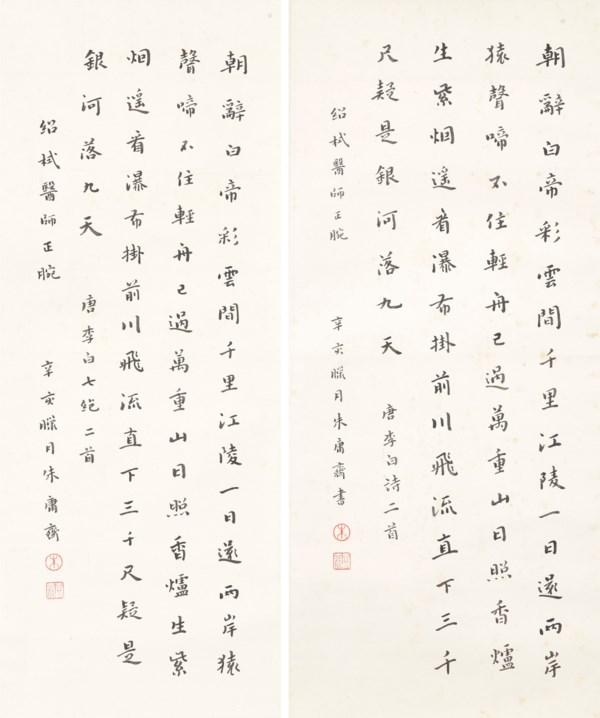 朝辭白帝彩雲間千里江陵一日還兩岸
猿聲啼不住輕舟已過萬重山日照香爐
生紫烟遥看瀑布掛前川飛流直下三千
尺疑是銀河落九天 唐李白詩二首
紹栻醫師正腕 辛亥臘月朱庸齋書
朱
朝辭白帝彩雲間千里江陵一日還兩岸猿
聲啼不住輕舟已過萬重山日照香爐生紫
烟遥看瀑布掛前川飛流直下三千尺疑是
銀河落九天 唐李白七絶二首
紹栻醫師正腕 辛亥臘月朱庸齋
朱